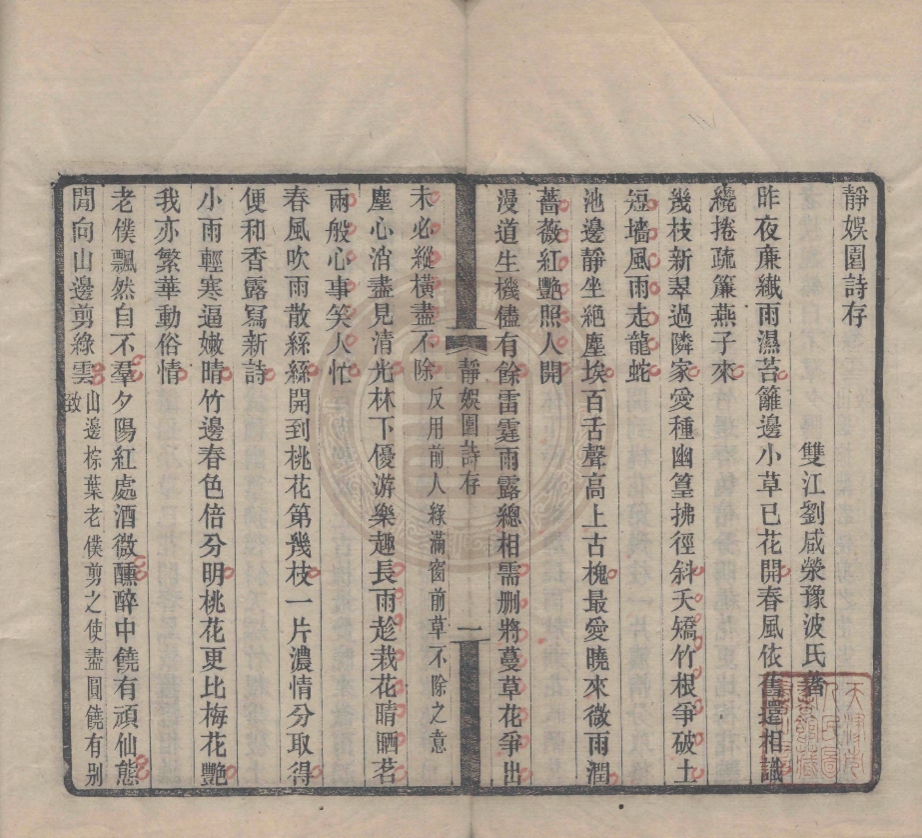 靜娛園詩存
雙江劉咸滎豫波氏著
昨夜廉纖雨濕苔籬邊小草已花開春風依舊還相識
纔捲疏簾燕子來
幾枝新翠過隣家愛種幽篁拂徑斜夭矯竹根爭破土
短墻風雨走龍蛇
池邊靜坐絕塵埃百舌聲高上古槐最愛曉來微雨潤
薔薇紅艷照人開
漫道生機儘有餘雷霆雨露總相需删將蔓草花爭出
靜娛園詩存
一
未必縱橫盡不除反用前人綠滿窗前草不除之意
塵心消盡見清光林下優游樂趣長雨趁栽花晴晒茗
兩般心事笑人忙
春風吹雨散絲絲開到桃花第幾枝一片濃情分取得
便和香露寫新詩
小雨輕寒逼嫩晴竹邊春色倍分明桃花更比梅花艷
我亦繁華動俗情
老僕飄然自不羣夕陽紅處酒微醺醉中饒有頑仙態
閒向山邊剪綠雲山邊棕葉老僕剪之使盡圓饒有别致